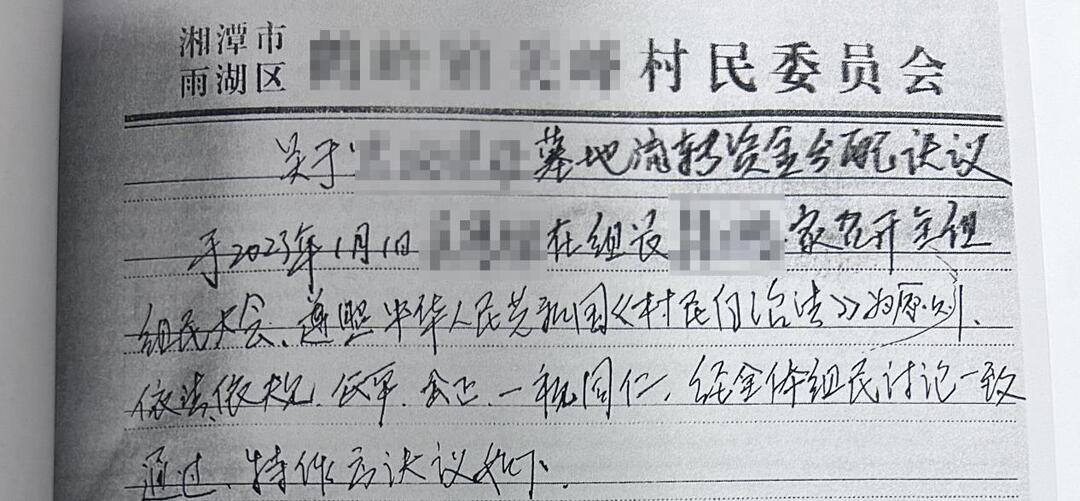 湘潭市
雨湖区
村民委员会
关于 墓地流转资金分配决议
于2023年1月1日 在组长 家召开全组
组民大会、遵照中华人民共和国《村民自治法》为原则、
依法、依规、公平、公正、一视同仁、经全体组民讨论一致
通过、特作出决议如下: